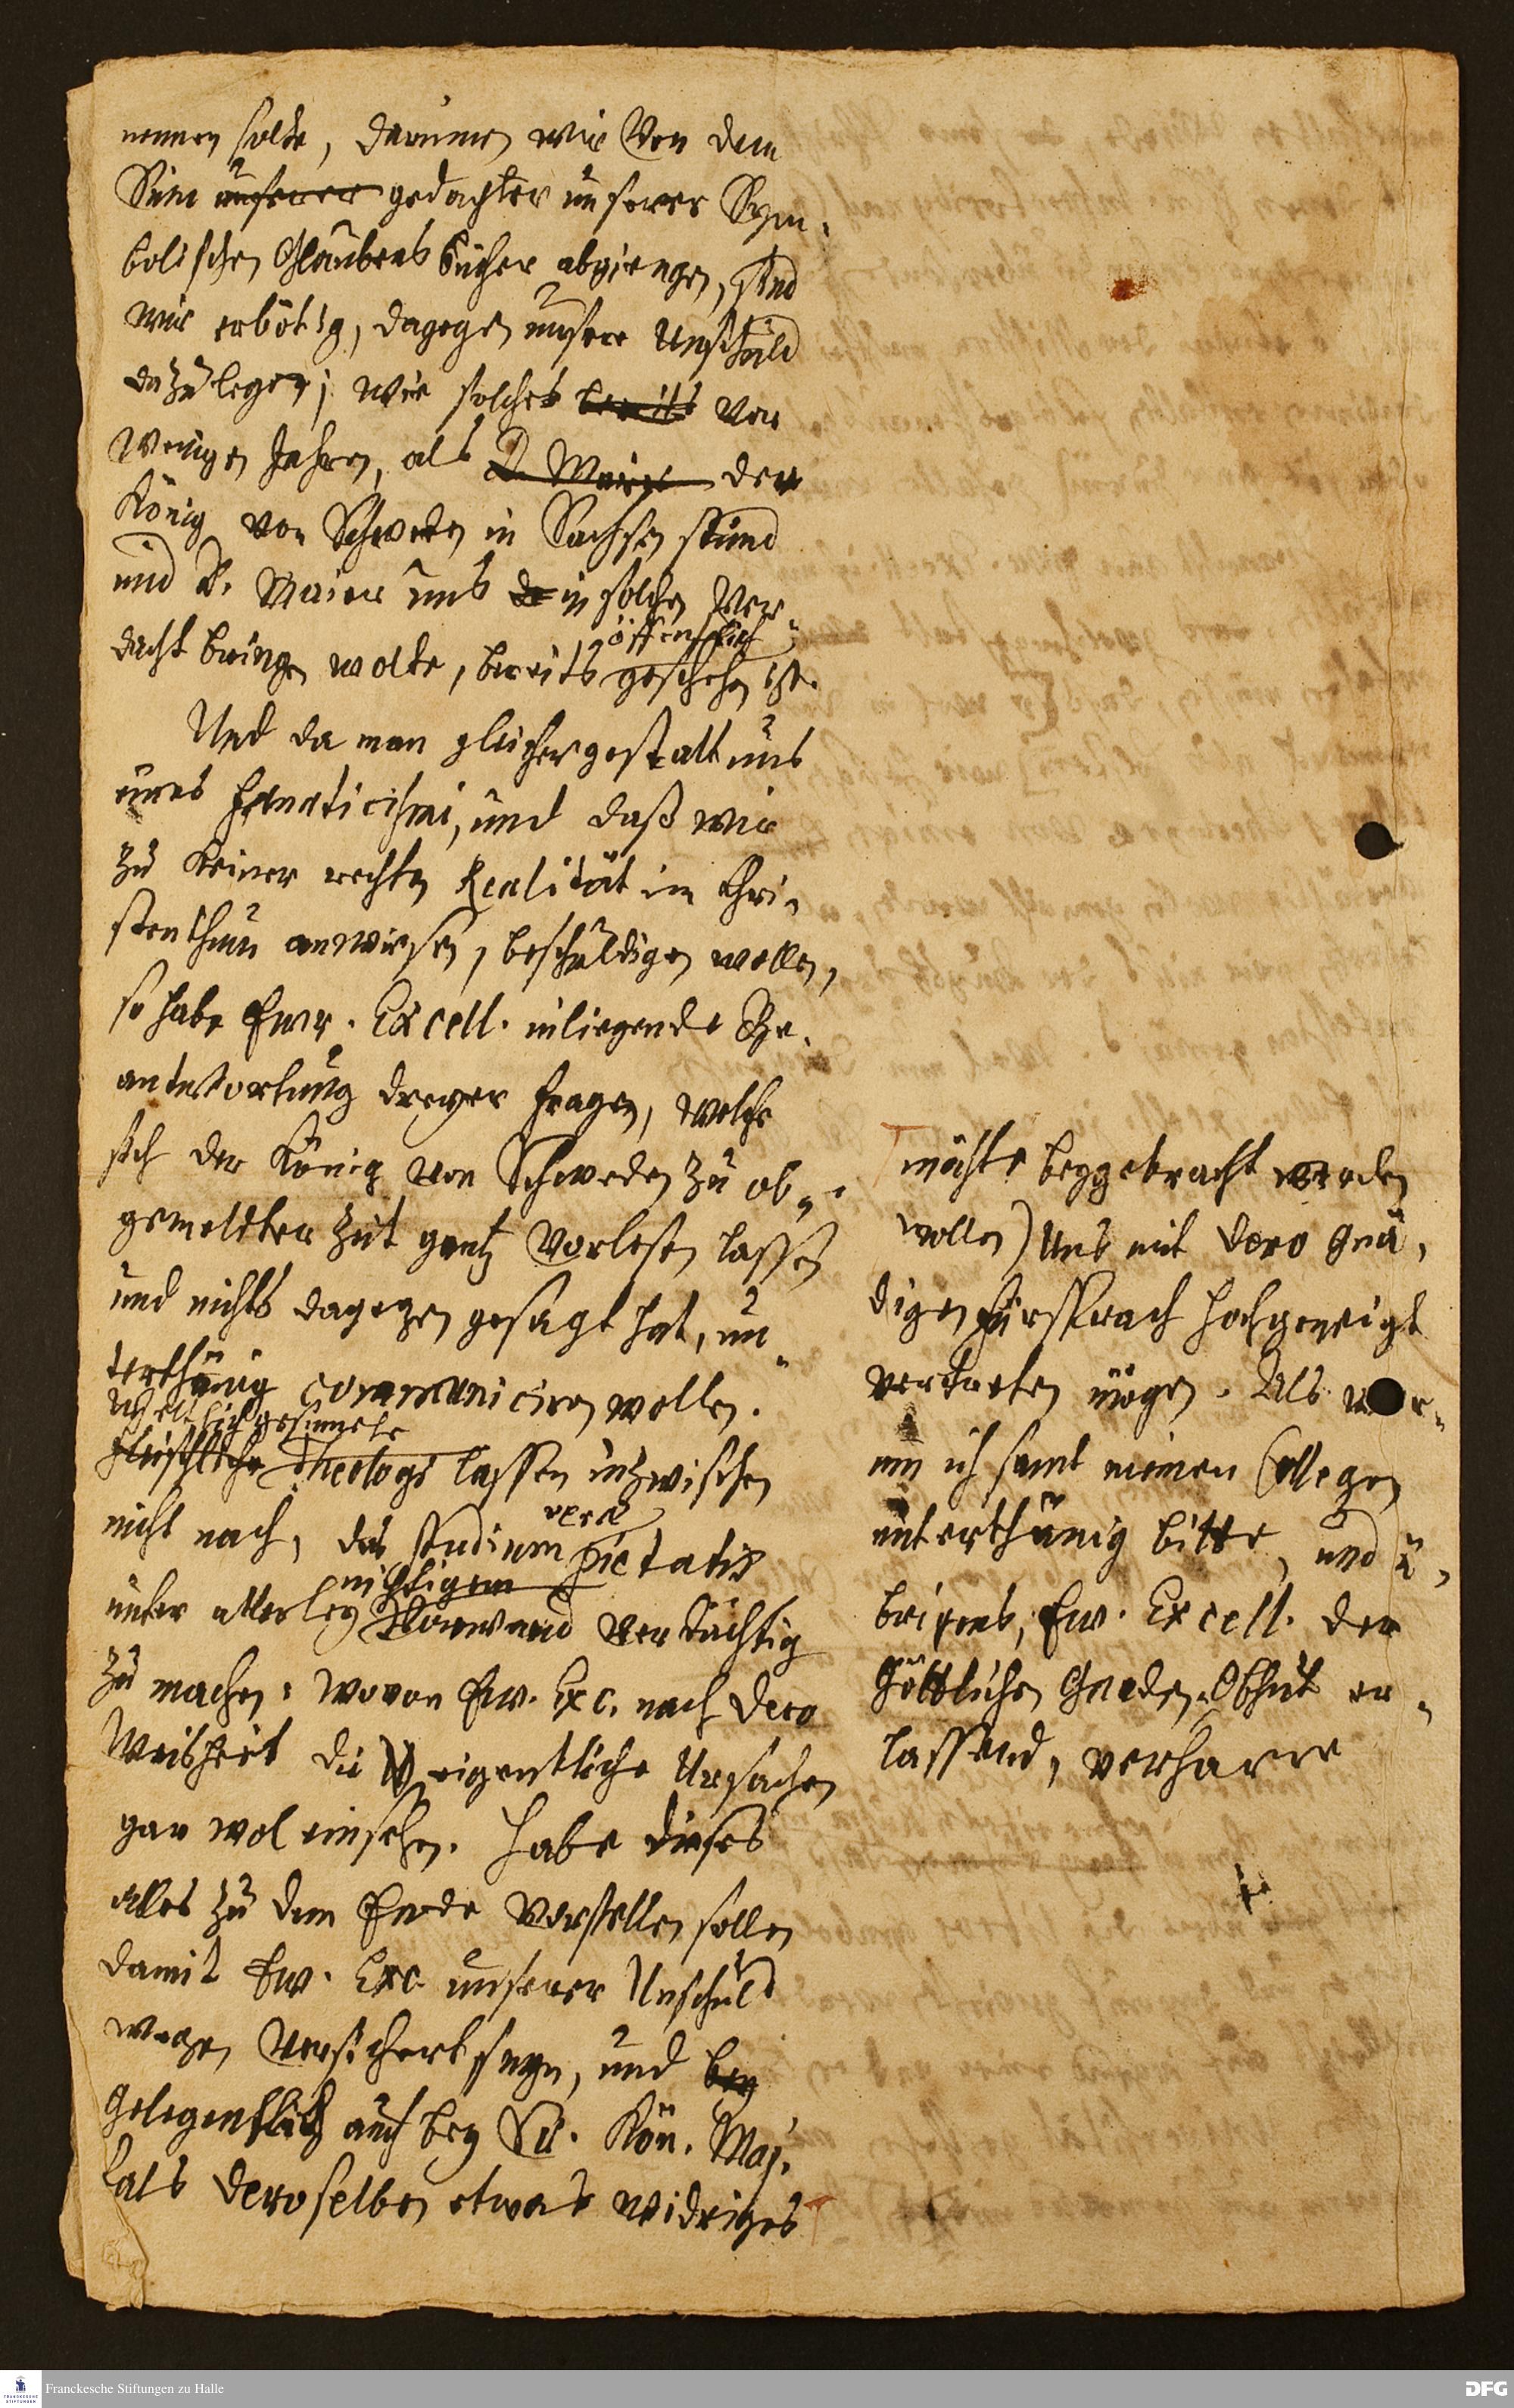 nennen solte, darinnen wir von dem
Sinn unserer gedachter unserer Sym-
bolischen Glaubens bücher abgiengen, sind
wir erbötig, dagegen unsere Unschuld
darzulegen; wie solches bereits vor
wenigen Jahren, als D. Maier der
König von Schweden in Sachsen stund
und D. Maier uns in solchen Ver-
öffentlich
dacht bringen wolte, bereits geschehen ist.
Und da man gleichergestalt uns
eines Fanaticismi, und daß wir
zu keiner rechten Realität im Chri-
stenthum anwiesen, beschuldigen wollen,
so habe Ewr. Excell. inliegende Be-
antwortung dreyer Fragen, welche
sich der König von Schweden zu ob-
gemeldter Zeit gantz vorlesen lassen
und nichts dagegen gesagt hat, un-
terthänig communiciren wollen.
Weltlich gesinnete
Fleischliche Theologi lassen inzwischen
nicht nach, das studium pietatis
verae
nichtigem
unter allerley Vorwand verdächtig
zu machen: wovon Ew. Exc. nach dero
Weisheit die eigentliche Ursachen
gar wol einsehen. Habe dieses
alles zu dem Ende vorstellen sollen
damit Ew. Exc. unserer Unschuld
wegen versichert seyn, und bey
gelegentlich auch bey Sr. Kön. Maj.
(als deroselben etwas widriges
möchte beygebracht werden
wollen) Uns mit dero gnä-
digen Fürsprach hochgeneigt
vertreten mögen. Als war-
um ich samt meinen Collegen
unterthänig bitte, und ü-
brigens, Ew. Excell. der
Göttlichen Gnaden-Obhut er-
lassend, verharre
Franckesche Stiftungen zu Halle
DFG